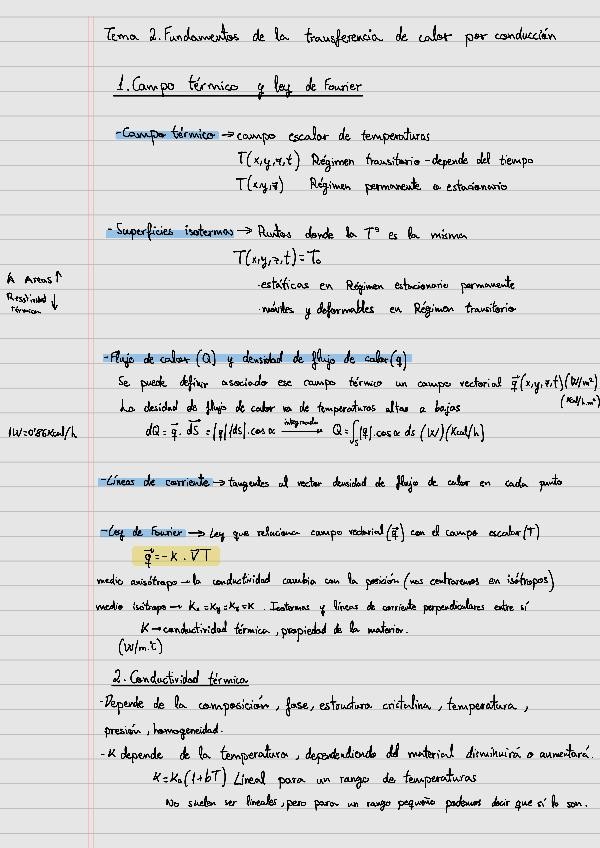 Tema 2. Fundamentos de la transferencia de calor por conducción
1. Campo térmico y ley de Fourier
- Campo térmico → campo escalar de temperaturas
T(x,y,z,t) Régimen transitorio - depende del tiempo
T(x,y,z) Régimen permanente o estacionario
- Superficies isotermas → Puntos donde la Tª es la misma
T(x,y,z,t) = T₀
· estáticas en Régimen estacionario permanente
· móviles y deformables en Régimen transitorio
A Areas ↑
Resistividad ↓
térmica
- Flujo de calor (Q) y densidad de flujo de calor (q)
Se puede definir asociado ese campo térmico un campo vectorial q⃗(x,y,z,t) (W/m²)
(Kcal/h.m²)
La desidad de flujo de calor va de temperaturas altas a bajas
1W=0'86Kcal/h
dQ = q⃗ · dS⃗ = |q||ds|.cos α integrando → Q = ∫ₛ|q|.cos α ds (W)(Kcal/h)
- Líneas de corriente → tangentes al vector densidad de flujo de calor en cada punto
- Ley de Fourier → Ley que relaciona campo vectorial (q⃗) con el campo escalar (T)
q⃗ = -K . ∇T
medio anisótropo → la conductividad cambia con la posición (nos centraremos en isótropos)
medio isótropo → Kx = Ky = Kz = K . Isotermas y líneas de corriente perpendiculares entre sí
K → conductividad térmica, propiedad de la materior.
(W/m.ºC)
2. Conductividad térmica
- Depende de la composición, fase, estructura cristalina, temperatura,
presión, homogeneidad.
- K depende de la temperatura, dependiendo del material disminuirá o aumentará.
K = K₀(1+bT) Lineal para un rango de temperaturas
No suelen ser lineales, pero para un rango pequeño podemos decir que sí lo son.